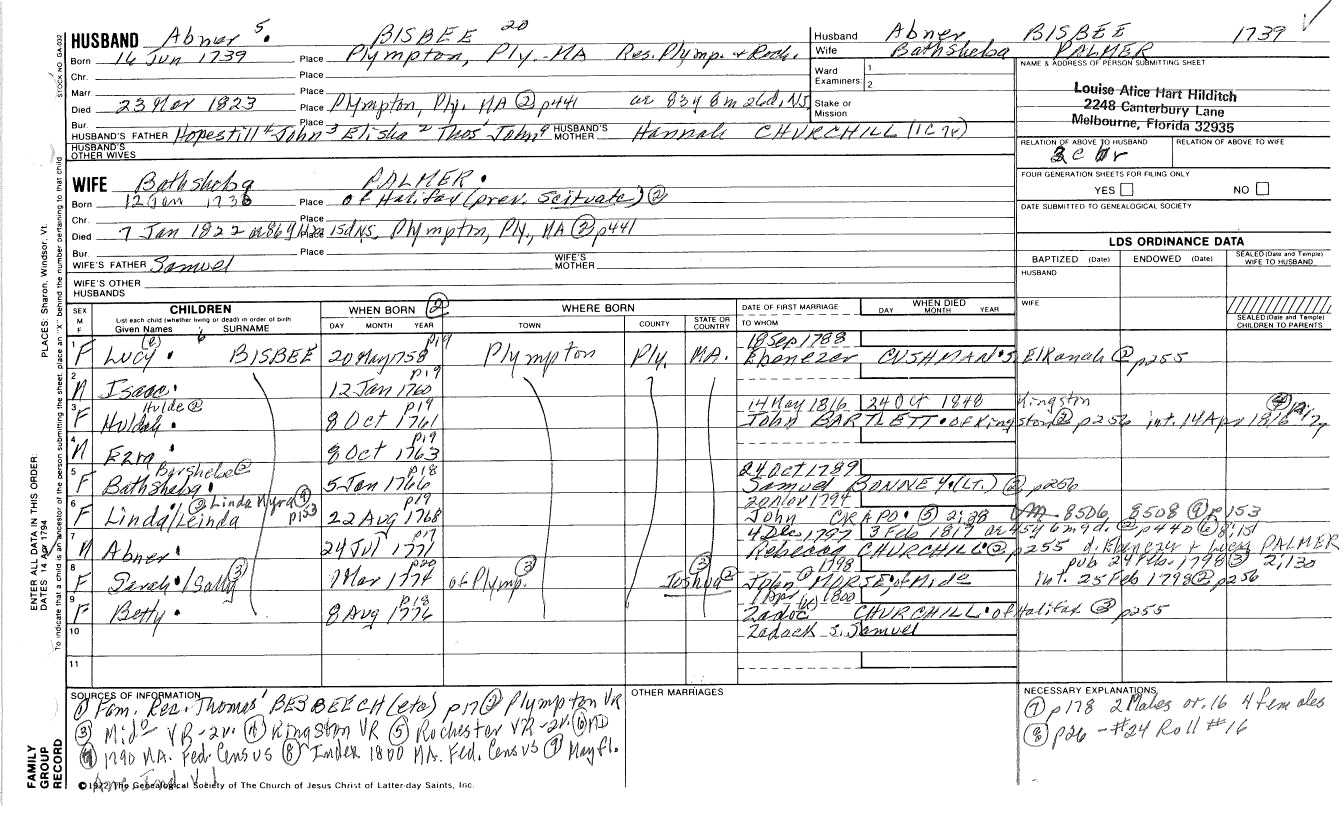 STOCK NO. GA-032
HUSBAND Abner 5. BISBEE 20
Born 14 Jun 1739 Place Plympton, Ply. MA Res. Plymp. & Roch.
Chr. Place
Marr Place
Died 23 Mar 1823 Place Plympton, Ply. MA ② p441 ae 83y 8m 26d, NS
Bur. Place
HUSBAND'S FATHER Hopestill 4 John 3 Elisha 2 Thos' John HUSBAND'S MOTHER Hannah CHURCHILL (1C74)
HUSBAND'S OTHER WIVES
Husband Abner BISBEE 1739
Wife Bathsheba PALMER
Ward Examiners: 1 2
Stake or Mission
NAME & ADDRESS OF PERSON SUBMITTING SHEET
Louise Alice Hart Hilditch
2248 Canterbury Lane
Melbourne, Florida 32935
RELATION OF ABOVE TO HUSBAND RELATION OF ABOVE TO WIFE
FOUR GENERATION SHEETS FOR FILING ONLY
YES NO
DATE SUBMITTED TO GENEALOGICAL SOCIETY
WIFE Bathsheba PALMER.
Born 12 Jan 1736 Place of Halifax (prev. Scituate) ②
Chr. Place
Died 7 Jan 1822 15d NS, Plympton, Ply., MA ② p441
Bur. Place
WIFE'S FATHER Samuel WIFE'S MOTHER
WIFE'S OTHER HUSBANDS
LDS ORDINANCE DATA
BAPTIZED (Date) ENDOWED (Date) SEALED (Date and Temple) WIFE TO HUSBAND
HUSBAND
WIFE
SEALED (Date and Temple) CHILDREN TO PARENTS
SEX M F CHILDREN List each child (whether living or dead) in order of birth Given Names SURNAME
WHEN BORN ② DAY MONTH YEAR
WHERE BORN TOWN COUNTY STATE OR COUNTRY
DATE OF FIRST MARRIAGE TO WHOM
WHEN DIED DAY MONTH YEAR
1 F Lucy. BISBEE 20 May 1758 p19 Plympton Ply. MA. 18 Sep 1788 Ebenezer CUSHMAN. S Elkanah ② p255
2 M Isaac. 12 Jan 1760 p19
3 F Huldah. Hulde ② 8 Oct 1761 p19 14 May 1816 24 Oct 1848 Kingston John BARTLETT. of Kingston ② p256 int. 14 Apr 1816 ④
4 M Ezra. 8 Oct 1763 p19
5 F Bathsheba. Barsheba ② 5 Jan 1766 p18 24 Oct 1789 Samuel BONNEY. (LT.) ② p256
6 F Linda/Leinda ② Linda Myra ⑨ p153 22 Aug 1768 p19 20 Nov 1794 John CRAPO. ⑤ 2:38 8506 8508 ⑨ p153
7 M Abner. 24 Jul 1771 p17 4 Dec 1797 3 Feb 1817 ae 45y 6m 9d. ② p440 ⑥ 8:151 Rebecca CHURCHILL. ② p255 d. Ebenezer & Lucy PALMER
8 F Sarah. /Sally ③ 1 Mar 1774 p20 of Plymp. ③ Joshua ② 1798 John MORSE, of Mide pub 24 Feb. 1798 ③ 2:130 int. 25 Feb 1798 ② p256
9 F Betty. 8 Aug 1776 p18 1 Apr 1800 Zadoc (k) CHURCHILL. of Halifax ② p255
10 Zadock s. Samuel
11
SOURCES OF INFORMATION
① Fam. Rec. Thomas' BESBEECH (etc) p17 ② Plympton VR
③ Mido VR-2v. ④ Kingston VR ⑤ Rochester VR-2v. ⑥ MD
⑦ 1790 MA. Fed. Census ⑧ Index 1800 MA. Fed. Census ⑨ Mayfl.
OTHER MARRIAGES
NECESSARY EXPLANATIONS
⑦ p178 2 Males ov. 16 4 females
⑧ p26 - #24 Roll #16
© 1972 The Genealogical Society of The Church of Jesus Christ of Latter-day Saints, Inc.
FAMILY GROUP RECORD
ENTER ALL DATA IN THIS ORDER:
DATES: 14 Apr 1794
PLACES: Sharon, Windsor, Vt.
To indicate that a child is an ancestor of the person submitting the sheet, place an "X" behind the number pertaining to that child